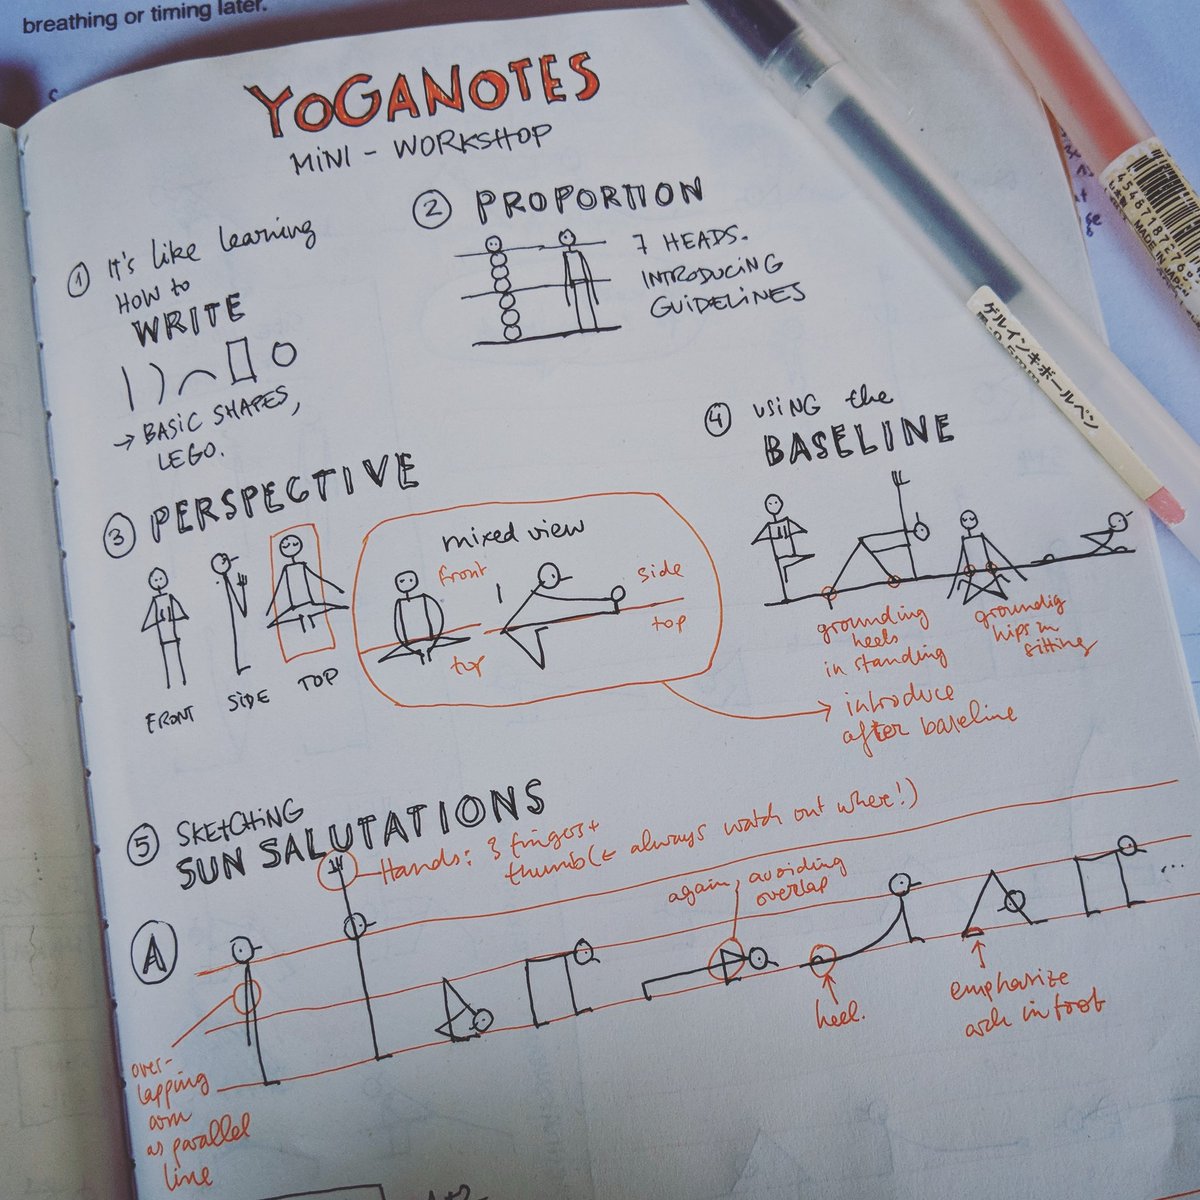 breathing or timing later.
YOGANOTES
MINI - WORKSHOP
① It's like learning
HOW to
WRITE
→ BASIC SHAPES,
LEGO.
② PROPORTION
7 HEADS.
INTRODUCING
GUIDELINES
③ PERSPECTIVE
FRONT
SIDE
TOP
mixed view
front
top
side
top
④ USING the
BASELINE
grounding
heels
in standing
groundig
hips in
sitting
→ introduce
after baseline
⑤ SKETCHING
SUN SALUTATIONS
Hands: 3 fingers +
thumb (← always watch out where!)
again, avoiding
overlap
A
...
over-
lapping
arm
as parallel
line
heel.
emphasize
arch in foot
MADE IN JAPAN
ゲルインキボールペン